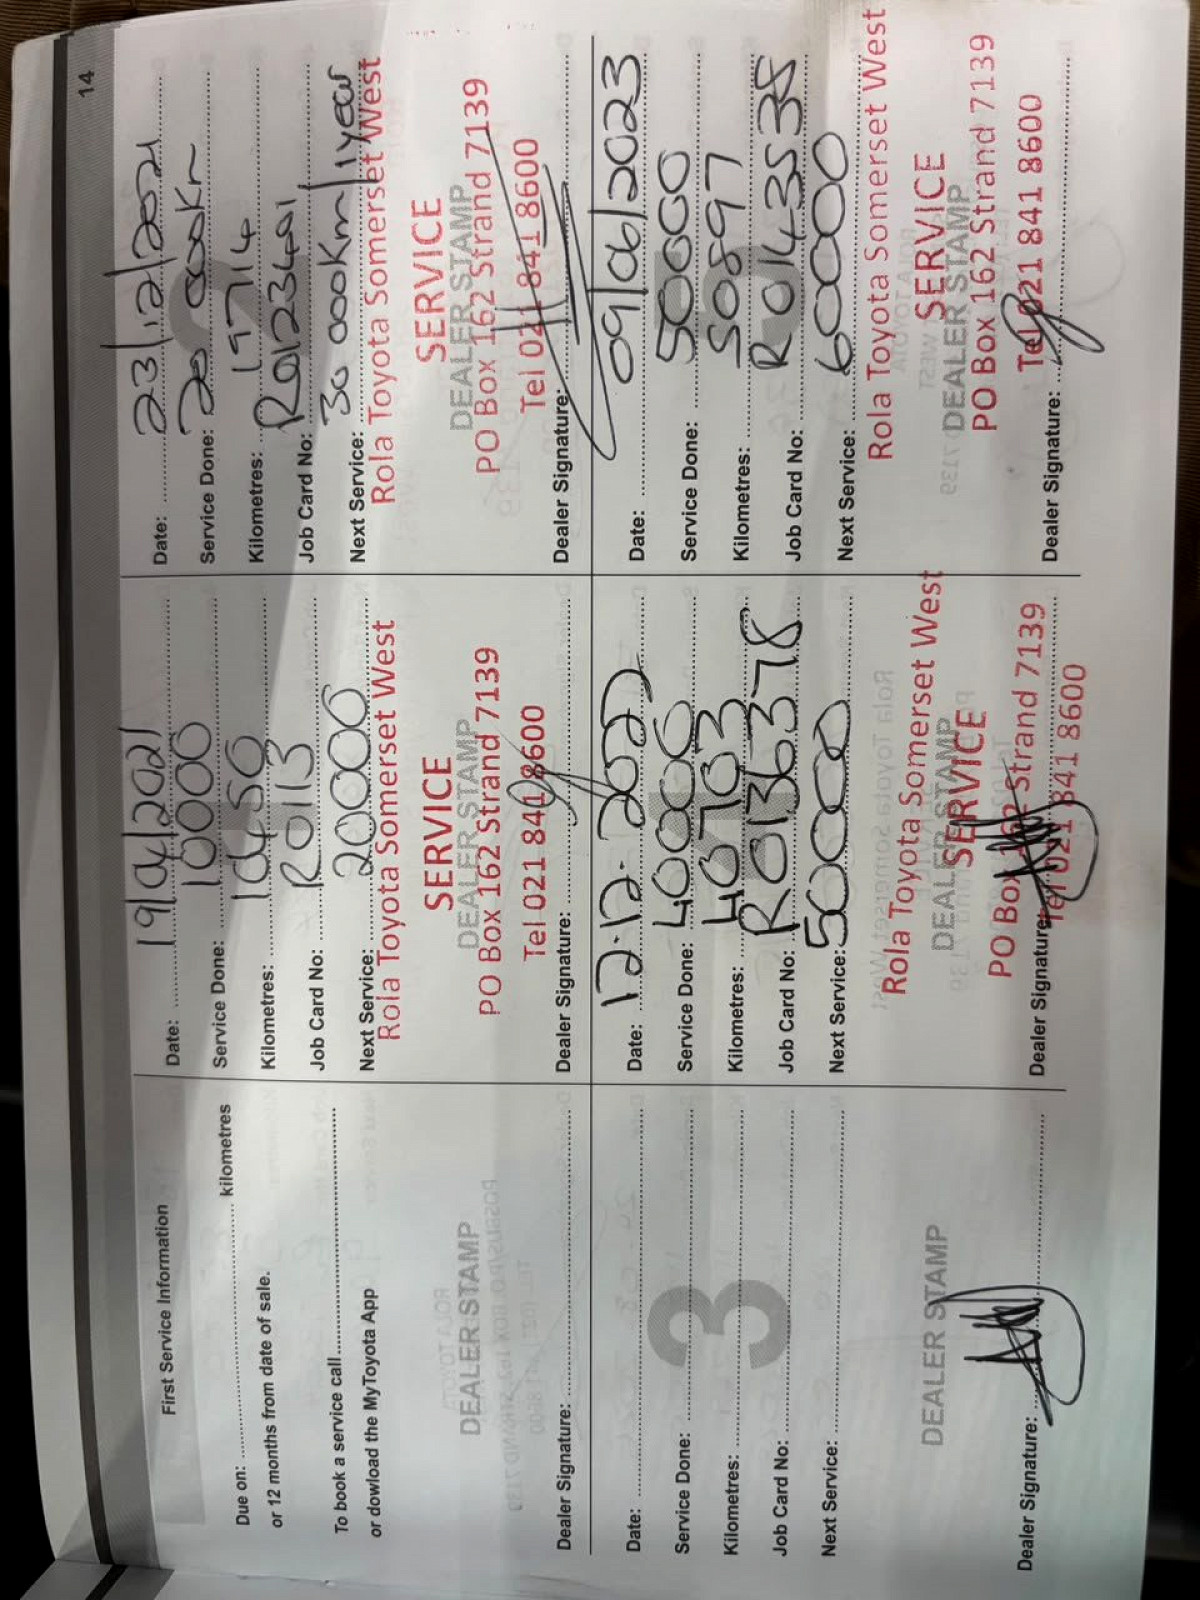 14
First Service Information
Due on: kilometres
or 12 months from date of sale.
To book a service call
or dowload the MyToyota App
DEALER STAMP
Dealer Signature:
Date: 19/04/2021
Service Done: 10000
Kilometres: 10450
Job Card No: R0113
Next Service: 20000
Rola Toyota Somerset West
SERVICE
DEALER STAMP
PO Box 162 Strand 7139
Tel 021 841 8600
Dealer Signature:
Date: 23/12/2021
Service Done: 20 000Km
Kilometres: 19714
Job Card No: R0123491
Next Service: 30 000Km/1year
Rola Toyota Somerset West
SERVICE
DEALER STAMP
PO Box 162 Strand 7139
Tel 021 841 8600
Dealer Signature:
3
Date:
Service Done:
Kilometres:
Job Card No:
Next Service:
DEALER STAMP
Dealer Signature:
Date: 12.12.2022
Service Done: 40000
Kilometres: 40703
Job Card No: R0136378
Next Service: 50000
Rola Toyota Somerset West
DEALER STAMP
SERVICE
PO Box 162 Strand 7139
Tel 021 841 8600
Dealer Signature:
Date: 09/06/2023
Service Done: 50000
Kilometres: 50897
Job Card No: R0143538
Next Service: 60000
Rola Toyota Somerset West
SERVICE
DEALER STAMP
PO Box 162 Strand 7139
Tel 021 841 8600
Dealer Signature: